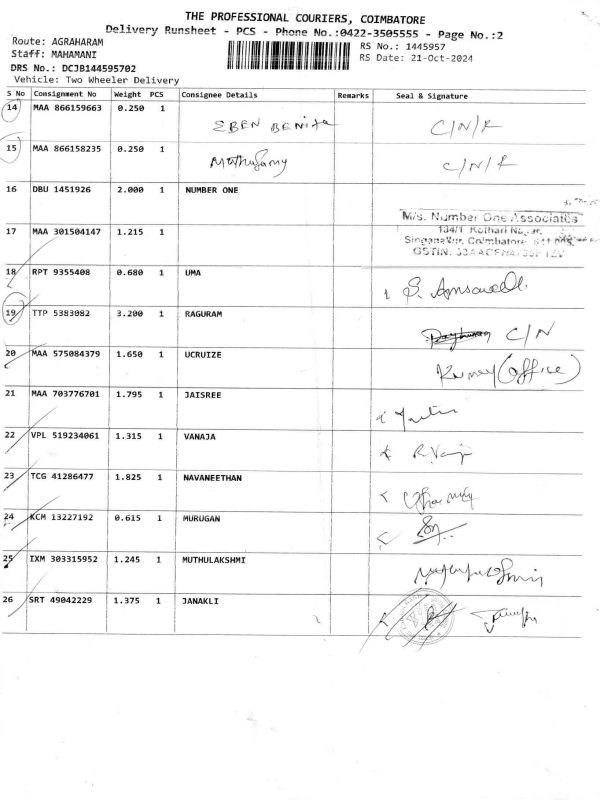 THE PROFESSIONAL COURIERS, COIMBATORE
Delivery Runsheet - PCS - Phone No.:0422-3505555 - Page No.:2
Route: AGRAHARAM
Staff: MAHAMANI
DRS No.: DCJB144595702
Vehicle: Two Wheeler Delivery
RS No.: 1445957
RS Date: 21-Oct-2024
S No Consignment No Weight PCS Consignee Details Remarks Seal & Signature
14 MAA 866159663 0.250 1 EBEN BENITA C/N/R
15 MAA 866158235 0.250 1 Muthusamy C/N/R
16 DBU 1451926 2.000 1 NUMBER ONE
M/s. Number One Associates
17 MAA 301504147 1.215 1 134/1 Kothari Nagar,
Singanallur, Coimbatore
GSTIN:
18 RPT 9355408 0.680 1 UMA
19 TTP 5383082 3.200 1 RAGURAM C/N
20 MAA 575084379 1.650 1 UCRUIZE (office)
21 MAA 703776701 1.795 1 JAISREE
22 VPL 519234061 1.315 1 VANAJA
23 TCG 41286477 1.825 1 NAVANEETHAN
24 KCM 13227192 0.615 1 MURUGAN
25 IXM 303315952 1.245 1 MUTHULAKSHMI
26 SRT 49042229 1.375 1 JANAKLI